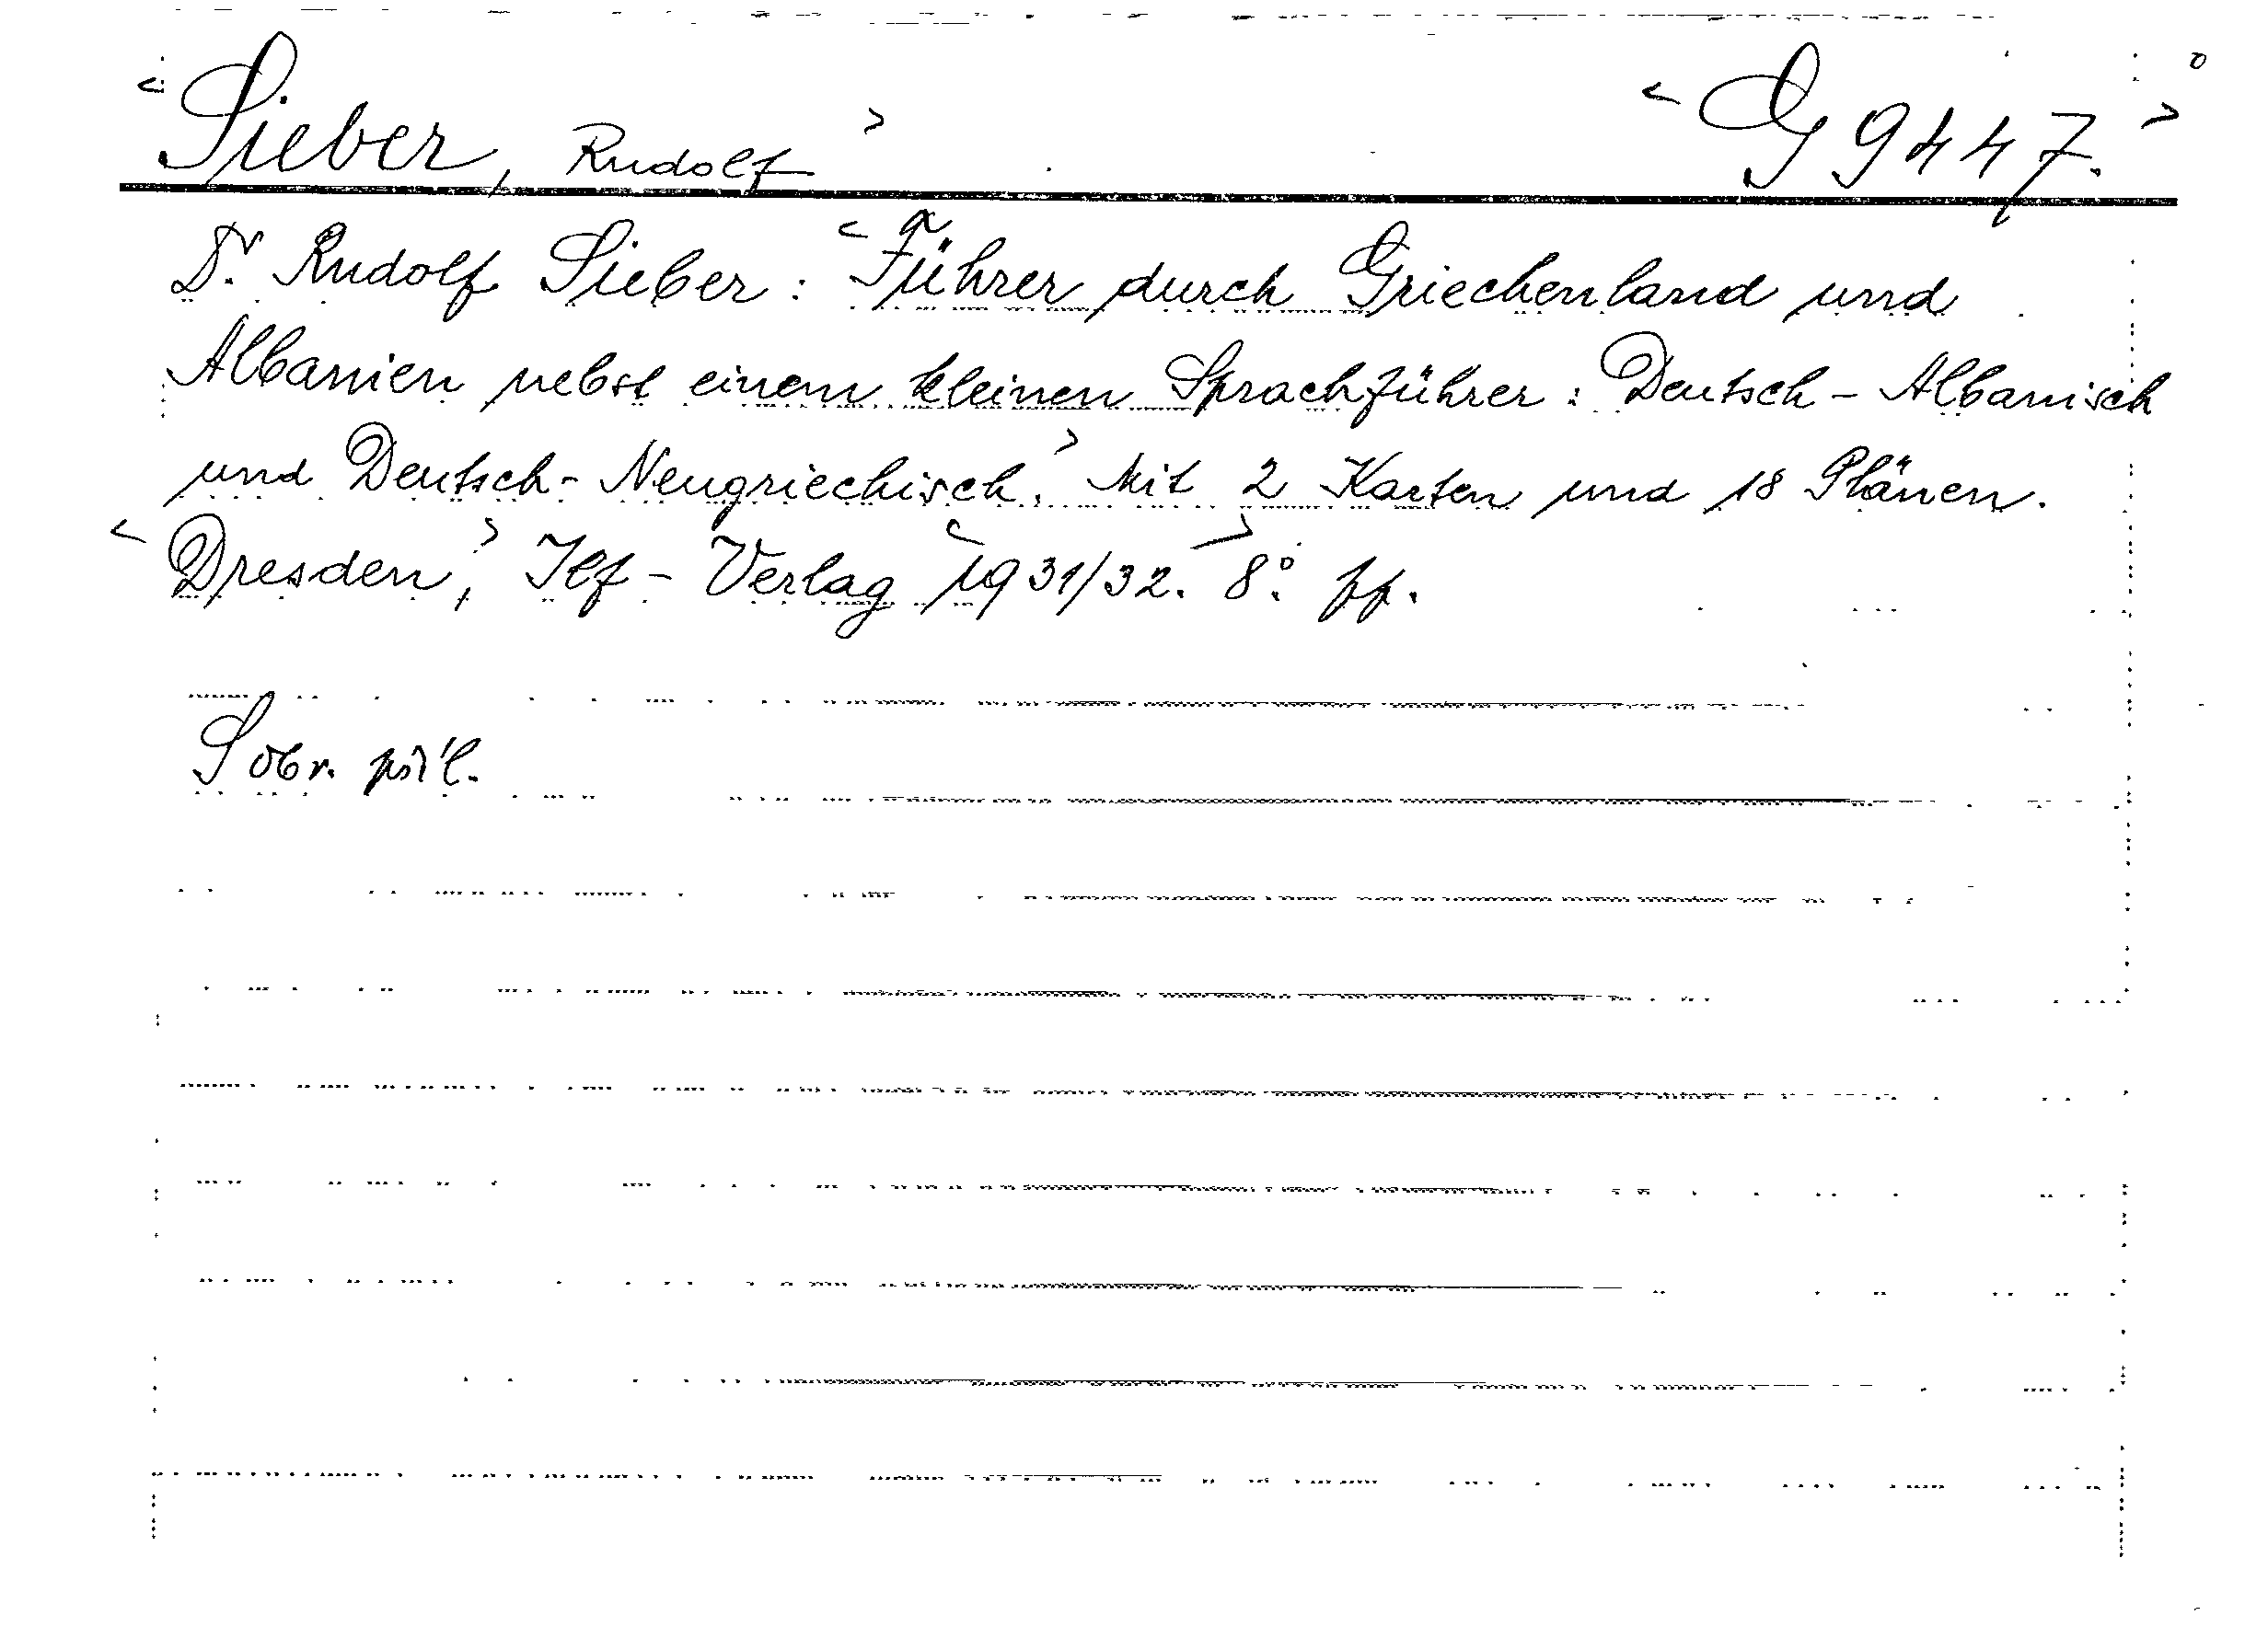 <Sieber, Rudolf> <G 9447.>
Dr. Rudolf Sieber: <Führer durch Griechenland und
Albanien nebst einem kleinen Sprachführer: Deutsch-Albanisch
und Deutsch-Neugriechisch.> Mit 2 Karten und 18 Plänen.
<Dresden,> Ilf-Verlag <1931/32.> 8°. pp.
S obr. příl.